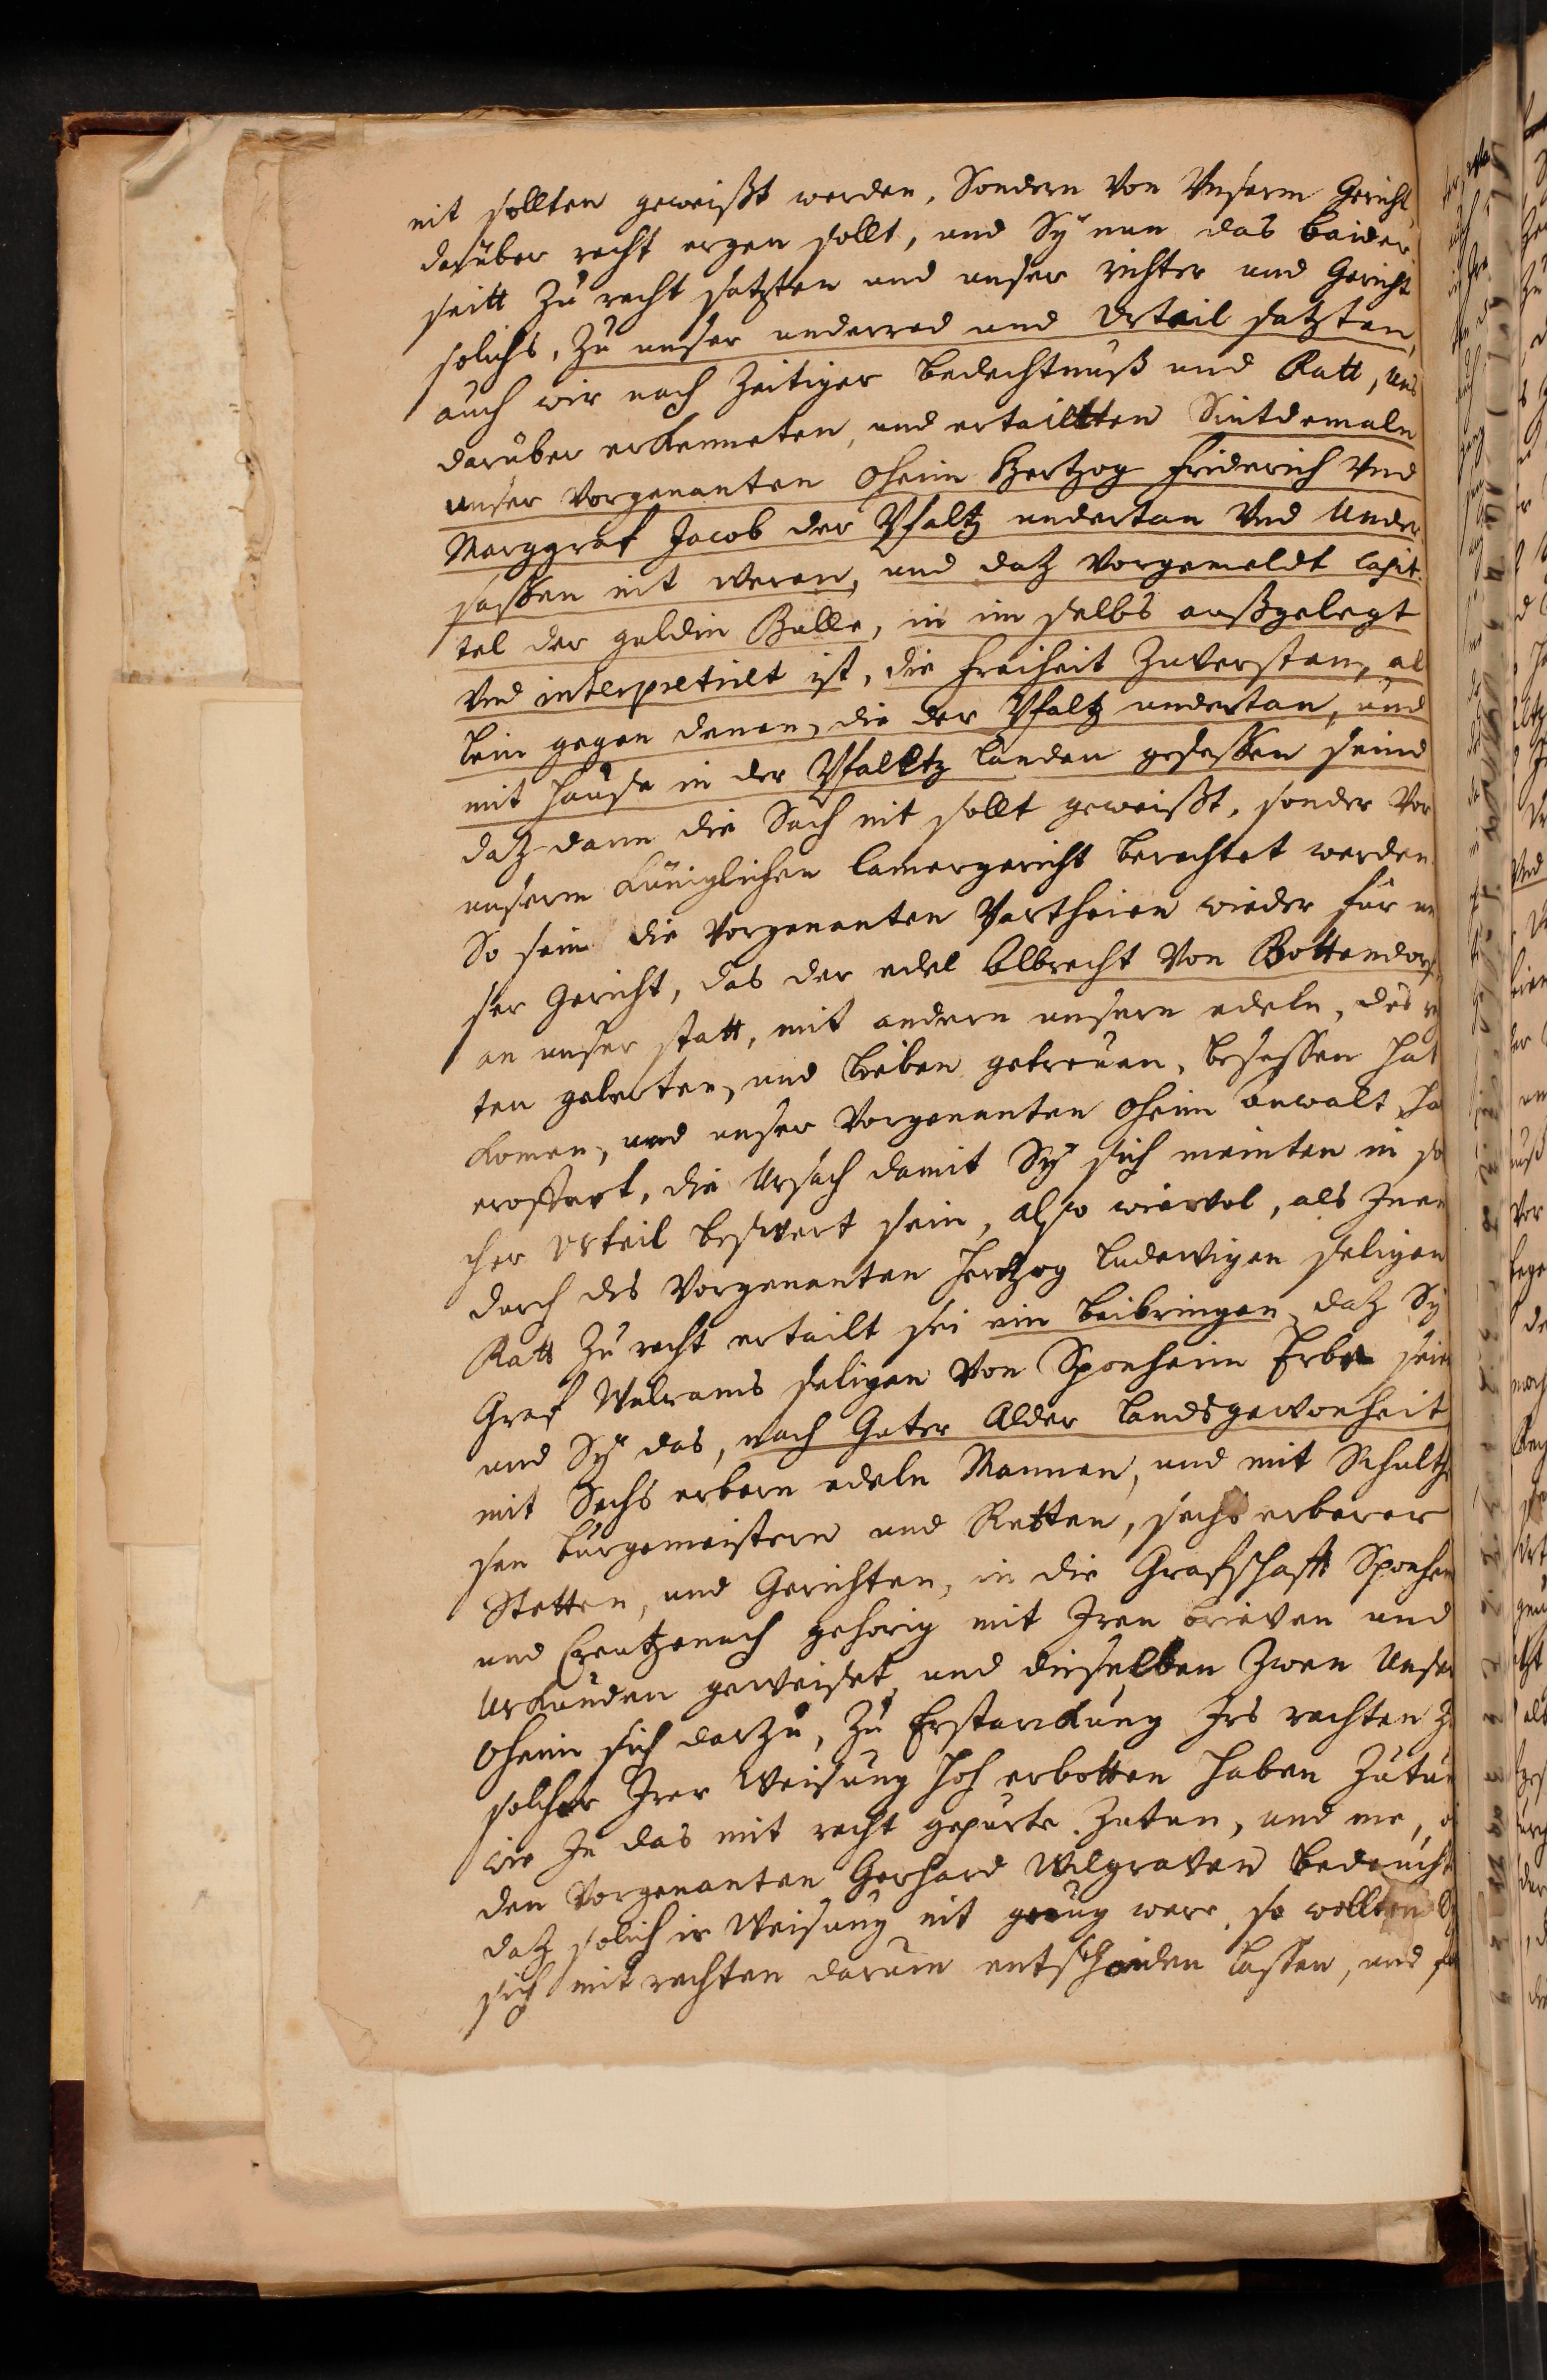 nit sollten geweißt werden, Sondern von Vnserm Gericht
darüber recht ergen sollt, und Sÿ nun das baider
seitt zu recht satzten und unser richter und Gericht
solichs, zu unser underred und Vrteil satzten,
auch wir nach zeitiger bedechtnuß und Ratt, uns
darüber erkenneten, und ertailtten Sintdemaln
unser vorgenanten Oheim Hertzog Friderich Vnd
Marggraf Jacob der Pfaltz undertan Vnd Under
sassen nit weren, und daz vorgemeldt Capit
tel der guldin Bulle, in im selbs außgelegt
Vnd interpretirt ist, die freiheit zuverstan, al
lein gegen denen, die der Pfaltz undertan, und
mit Hause in der Pfalltz Landen gesessen seind
daz dann die Sach nit sollt geweißt, sonder Vor
unserm Küniglichen Camergericht berechtet werden
So sein die vorgenanten Partheien wieder für un
ser Gericht, das der edel Albrecht von Bottendorf
an unser statt, mit andern unsern edeln, des
ten gelerten, und lieben getreuen, besessen hat
komen, und unser vorgenanten Oheim anwalt ha
eroffnet, die Ursach damit Sÿ sich meinten in so
cher Vrteil beswert sein, also wiewol, als Inen
durch des vorgenanten Hertzog Ludewigen seligen
Ratt zu recht ertailt sei ein beibringen, daz Sÿ
Graf Walrams seligen von Sponheim Erben sein
und Sÿ das, nach Guter Alder Landsgewonheit
mit Sechs erbern edeln Mannen, und mit Schulth
sen Burgemeistern und Retten, sechs erberer
Stetten, und Gerichten, in die Grafschafft Sponhem
und Creutzenach gehorig mit Iren brieven und
Urkunden geweiset, und dieselben zwen Unser
Oheim sich darzu, zu Erstarckung Irs rechten zu
solcher Irer Weisung hoh erbotten haben zutun
wie In das mit recht gepurte zutun, und me,
den vorgenanten Gerhard Wilgraven beducht
daz solich ir Weisung nit genug were, so wollten Sÿ
sich mit rechten darum entscheiden lassen, und